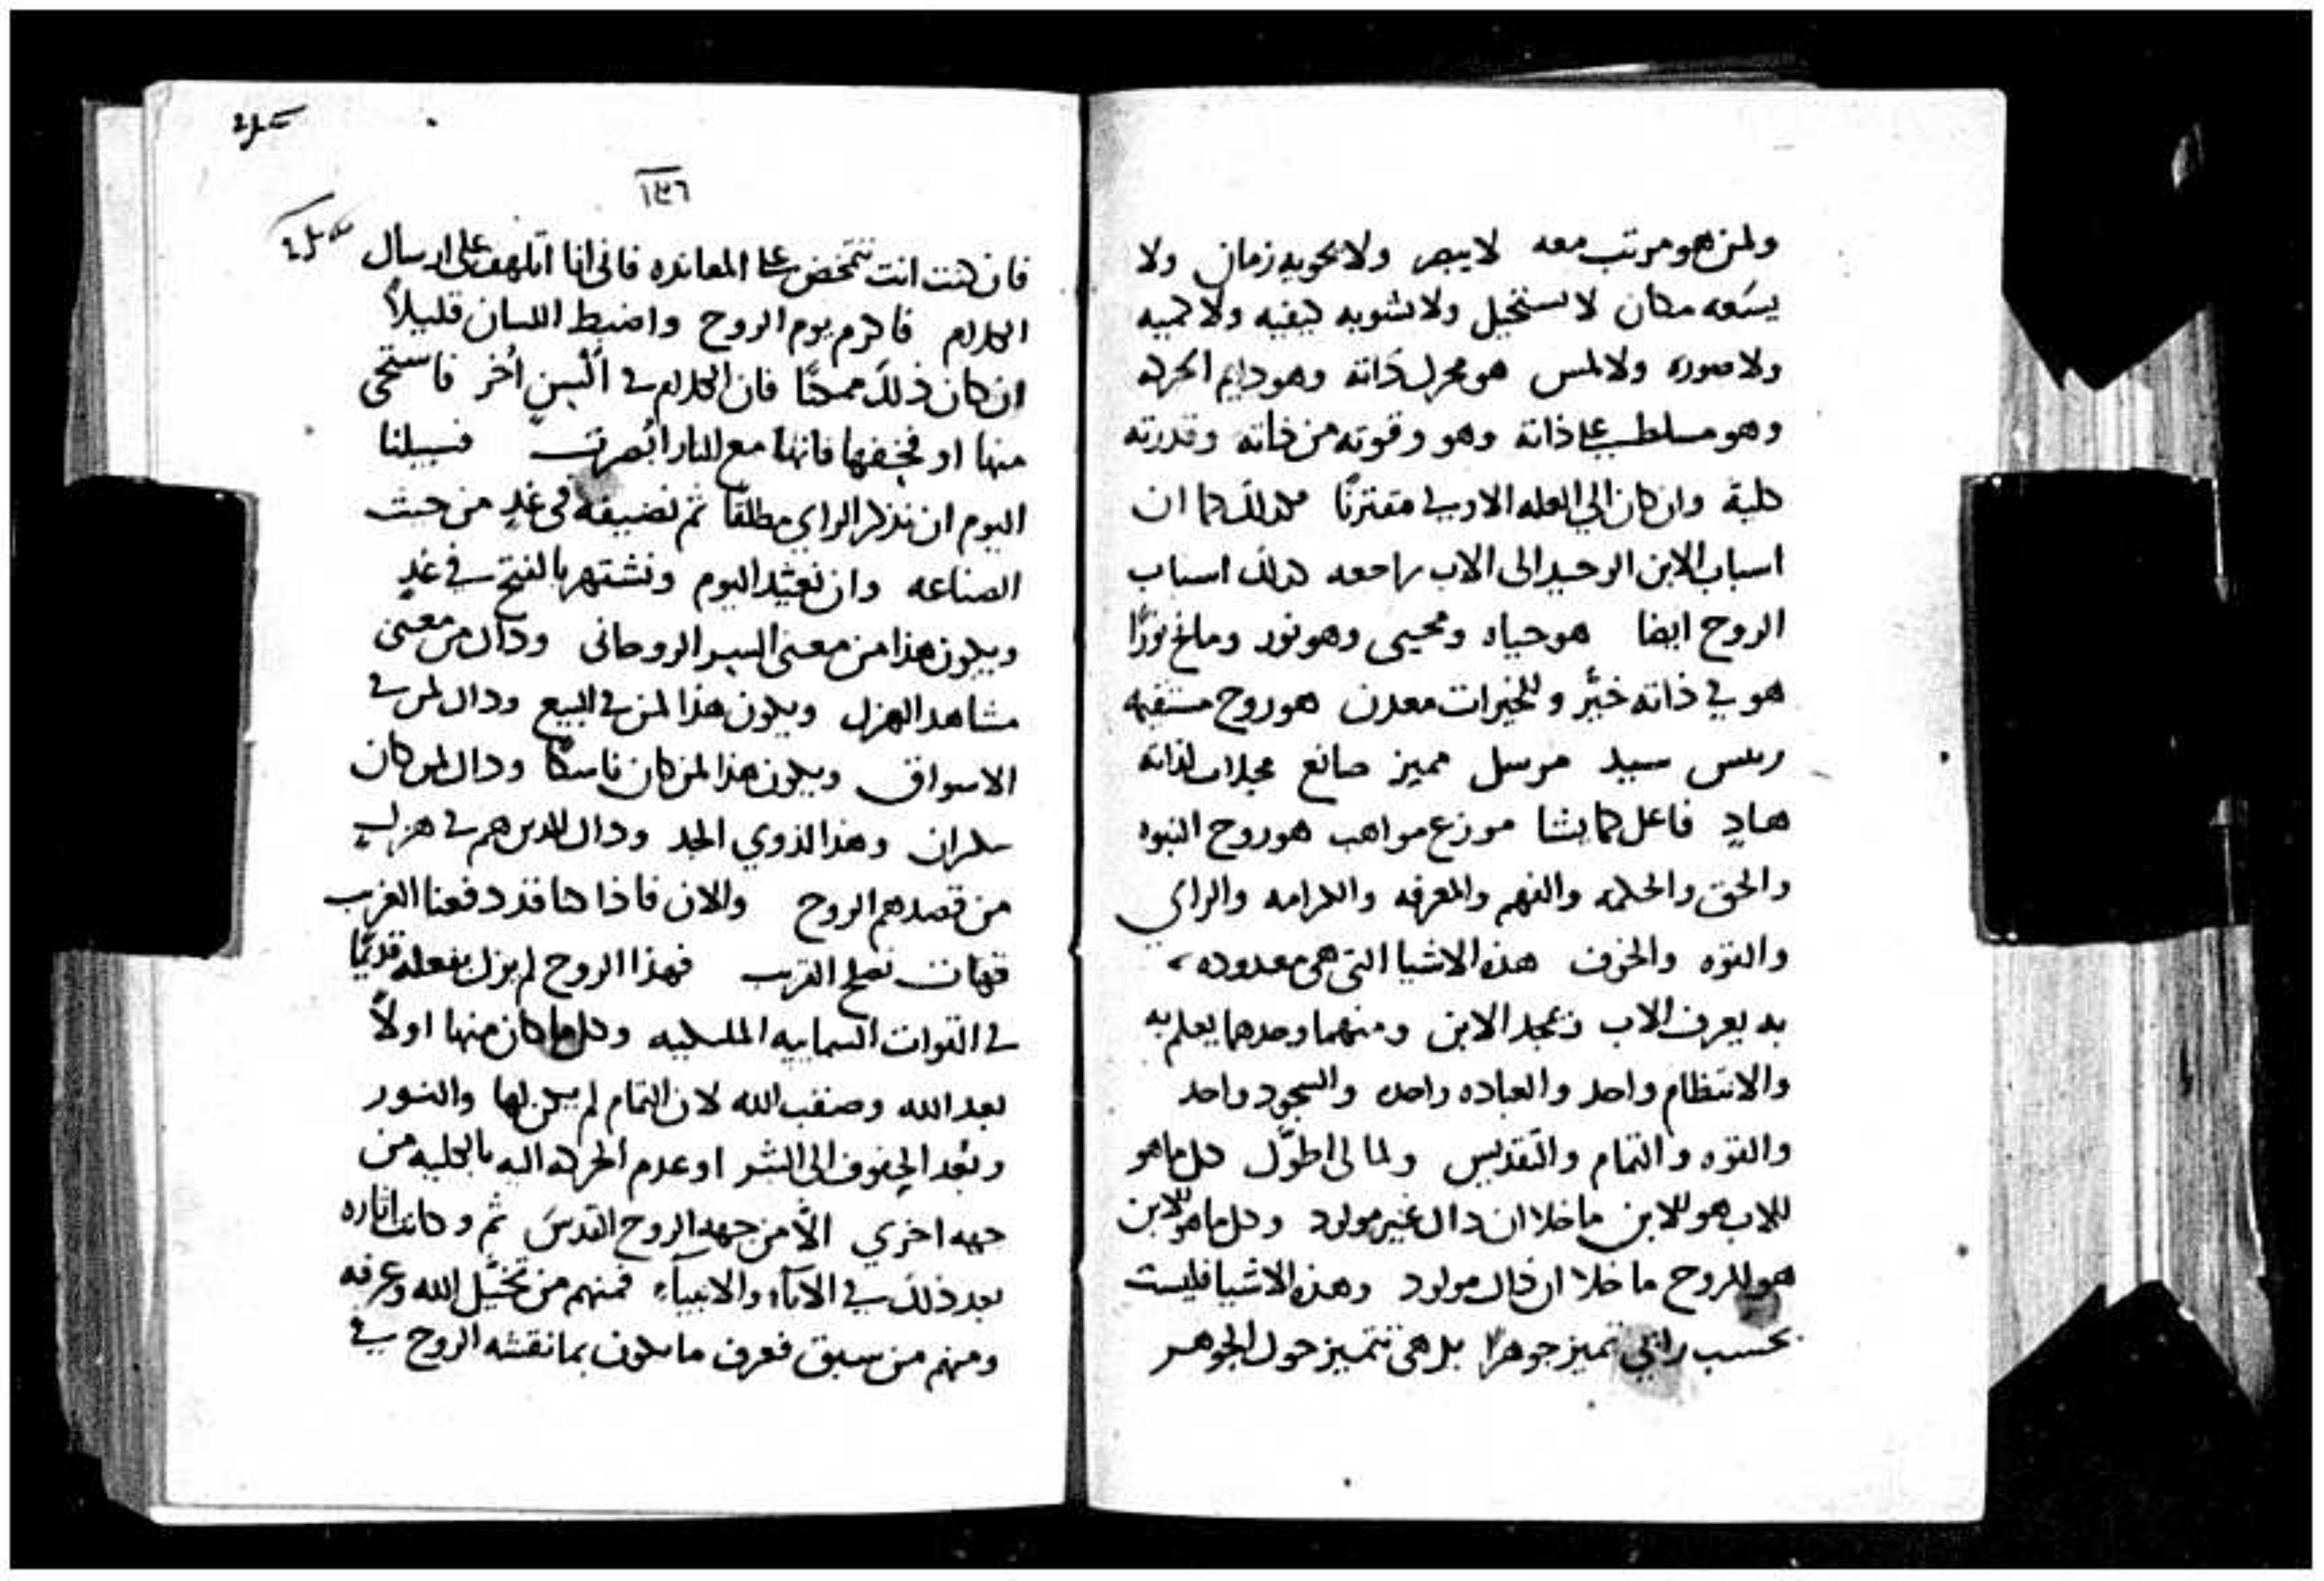 ولمن هو مرتب معه لا يبصر ولا يحويه زمان ولا
يسَعه مكان لا يستحيل ولا تشوبه كيفيه ولا كميه
ولا صوره ولا لمس هو محرك ذاته وهو دايم الحركه
وهو مسلط على ذاته وهو وقوته من ذاته وقدرته
كلية وان كان الي العله الاولى مقترنًا فكذلك كما ان
اسباب الابن الوحيد الى الاب راجعه كذلك اسباب
الروح ايضا هو حياه ومحيى وهو نور ومانح نورًا
هو في ذاته خيّر وللخيرات معدن هو روح مستقيم
ريس سيد مرسل مميز صانع لذاته
هادٍ فاعل كما يشا موزع مواهب هو روح النبوه
والحق والحكمه والفهم والمعرفه والكرامه والراي
والقوّه والخوف هذه الاشيا التى هى معدوده
به يعرف الاب ويمجد الابن ومنهما وحدهما يعلم به
والانتظام واحد والعباده واحده والسجود واحد
والقوّه والتمام والتقديس ولما لى اطوّل كل ما هو
للاب هو للابن ما خلا ان ذاك غير مولود وكل ما هو للابن
هو للروح ما خلا ان ذاك مولود وهذه الاشيا فليست
بحسب رايي تميز جوهرًا بل هى تتميز حول الجوهر
١٤٦
فان كنت انت تتمخض على المعانده فانى انا اتلهف على ارسال
الكلام فاكرم يوم الروح واضبط اللسان قليلاً
ان كان ذلك ممكنًا فان الكلام في ألسنٍ أخر فاستحى
منها او فخفها فانها مع النار أبصرت فسبيلنا
اليوم ان نذكر الراي مطلقًا ثم نضيفه فى غدٍ من حيث
الصناعه وان نعيّد اليوم ونشتهر بالفتح في غدٍ
ويكون هذا من معنى السر الروحانى وذاك من معنى
مشاهد الهزل ويكون هذا لمن في البيع وذاك لمن في
الاسواق ويكون هذا لمن كان ناسكًا وذاك لمن كان
سكران وهذا لذوي الجد وذاك للذين هم في هزلٍ
من قصدهم الروح والان فاذا كنا قد دفعنا الغريب
فهات نصلح القريب فهذا الروح لم يزل بفعله قديمًا
في القوات السماييه الملكيه وكل ما كان منها اولاً
بعد الله وصقب الله لان التمام لم يكن لها والنور
وبُعد الحفوف الى الشر او عدم الحركه اليه بالكليه من
جهه اخري الّا من جهه الروح القدسَ ثم وكانت اثاره
بعد ذلك في الآباء والانبياء فمنهم من تخيّل الله وعرفه
ومنهم من سبق فعرف ما يكون بما نقشه الروح في